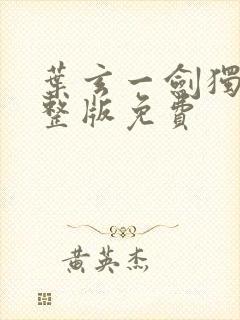 葉玄一劍獨
整版免費
黃英杰